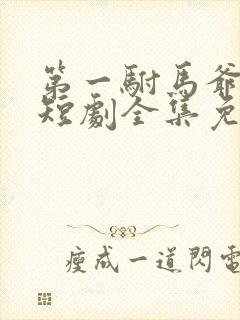 第一駙馬爺
短劇全集免
瘦成一道閃電